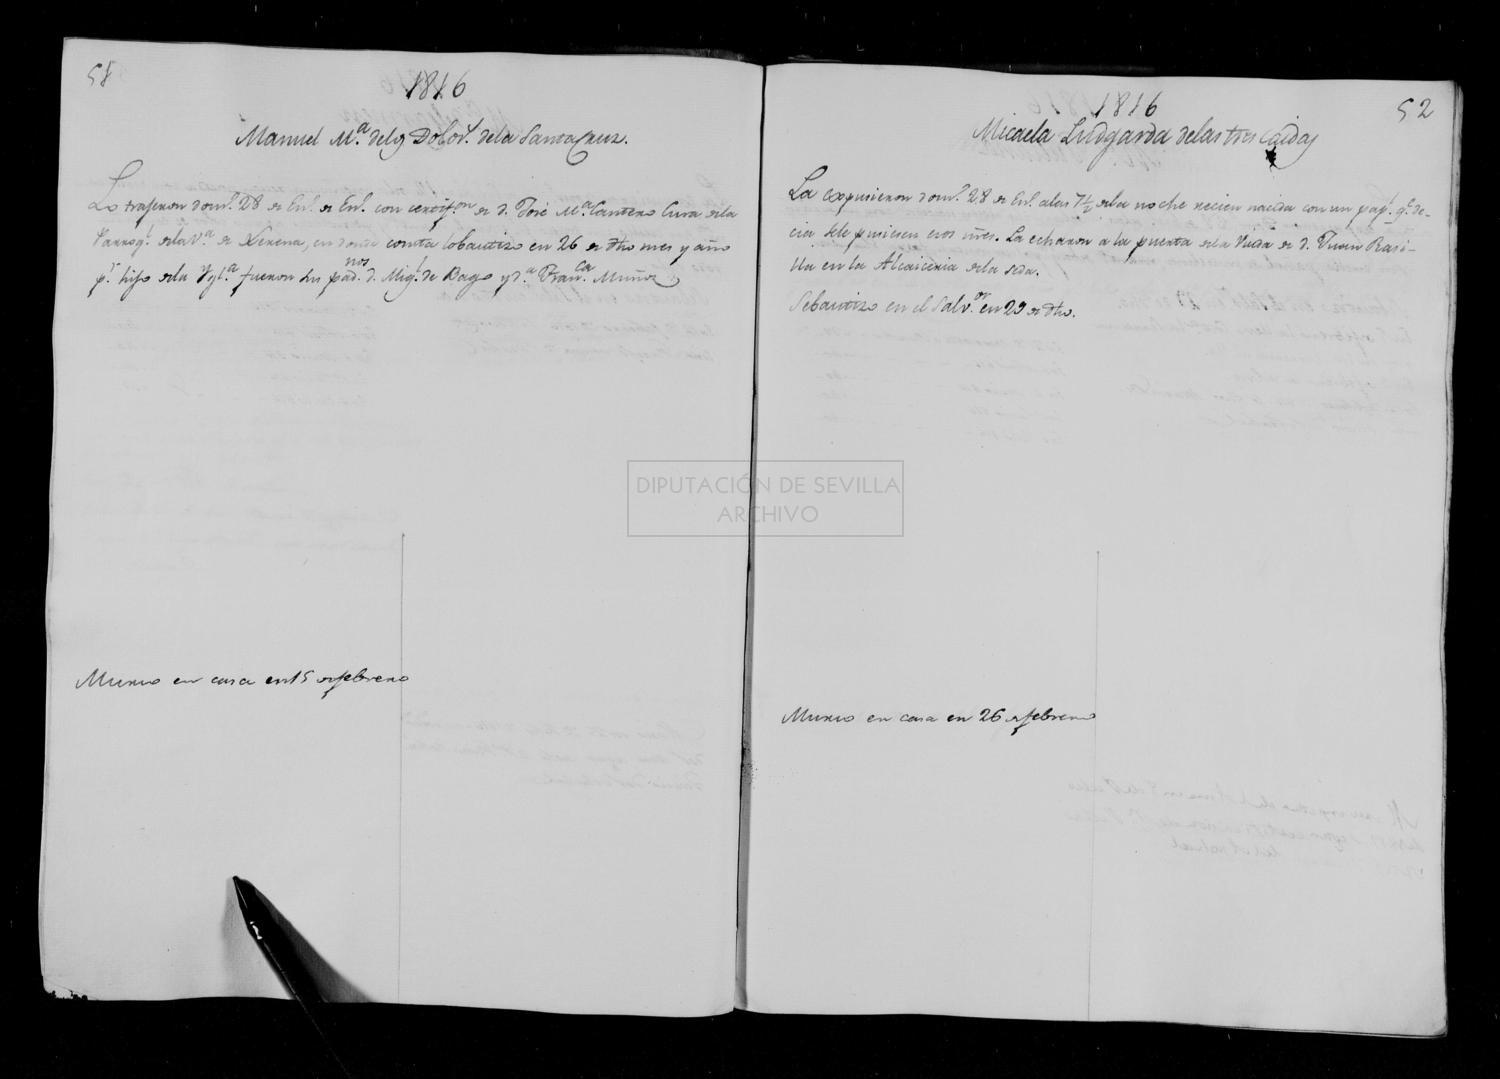 58
1816
Manuel M.ª delos Dolor.s dela Santa Cruz.
Lo trajeron dom.º 28 de En.º de En.º con certif.on de D. José M.ª Cantero Cura dela
Parroq.l dela V.ª de Lerena, en donde consta lo bautizo en 26 de dho mes y año
p.r hijo dela Ygl.ª fueron sus pad.nos d. Mig.l de Bago y d.ª Fran.ca Muñoz
Murio en casa en 15 de febrero
DIPUTACIÓN DE SEVILLA
ARCHIVO
52
1816
Micaela Ludgarda delas tres Caidas
La expusieron dom.º 28 de En.º alas 7½ dela noche recien nacida con un pap.l q.e de-
cia sele pusiesen esos nres. La echaron a la puerta dela Viuda de d. Juan
en la Alcaiceria dela seda.
Sebautizo en el Salv.or en 29 de dho.
Murio en casa en 26 de febrero